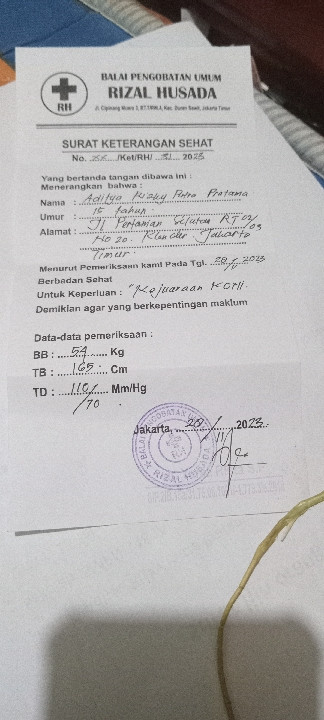 BALAI PENGOBATAN UMUM
RIZAL HUSADA
RH
SURAT KETERANGAN SEHAT
No. xx /Ket/RH/ XI 2023
Yang bertanda tangan dibawa ini :
Menerangkan bahwa :
Nama : Aditya Rizky Putra Pratama
Umur : 15 tahun
Alamat : Jl Pertanian Selatan RT 02/03
No 20. Klender. Jakarta
Timur.
Menurut Pemeriksaan kami Pada Tgl. 20/11 2023
Berbadan Sehat
Untuk Keperluan : "Kejuaraan KONI.
Demiklan agar yang berkepentingan maklum
Data-data pemeriksaan :
BB : 54 Kg
TB : 165 Cm
TD : 110/70 Mm/Hg
Jakarta, 20/11/ 2023
BALAI PENGOBATAN UMUM
RIZAL HUSADA